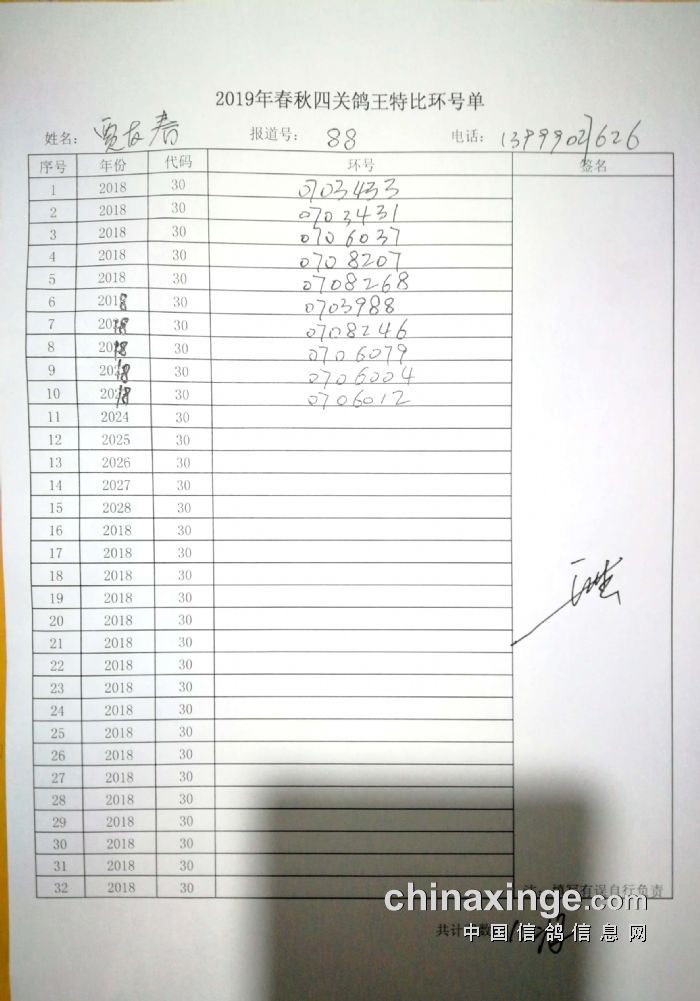 2019年春秋四关鸽王特比环号单
姓名: 贾友春 报道号: 88 电话: 13999027626
序号 年份 代码 环号 签名
1 2018 30 0703433
2 2018 30 0703431
3 2018 30 0706037
4 2018 30 0708207
5 2018 30 0708268
6 2018 30 0703988
7 2018 30 0708246
8 2018 30 0706079
9 2018 30 0706004
10 2018 30 0706012
11 2024 30
12 2025 30
13 2026 30
14 2027 30
15 2028 30
16 2018 30
17 2018 30
18 2018 30
19 2018 30
20 2018 30
21 2018 30
22 2018 30
23 2018 30
24 2018 30
25 2018 30
26 2018 30
27 2018 30
28 2018 30
29 2018 30
30 2018 30
31 2018 30
32 2018 30
注: 填写有误自行负责
chinaxinge.com
共计 数
中国信鸽信息网